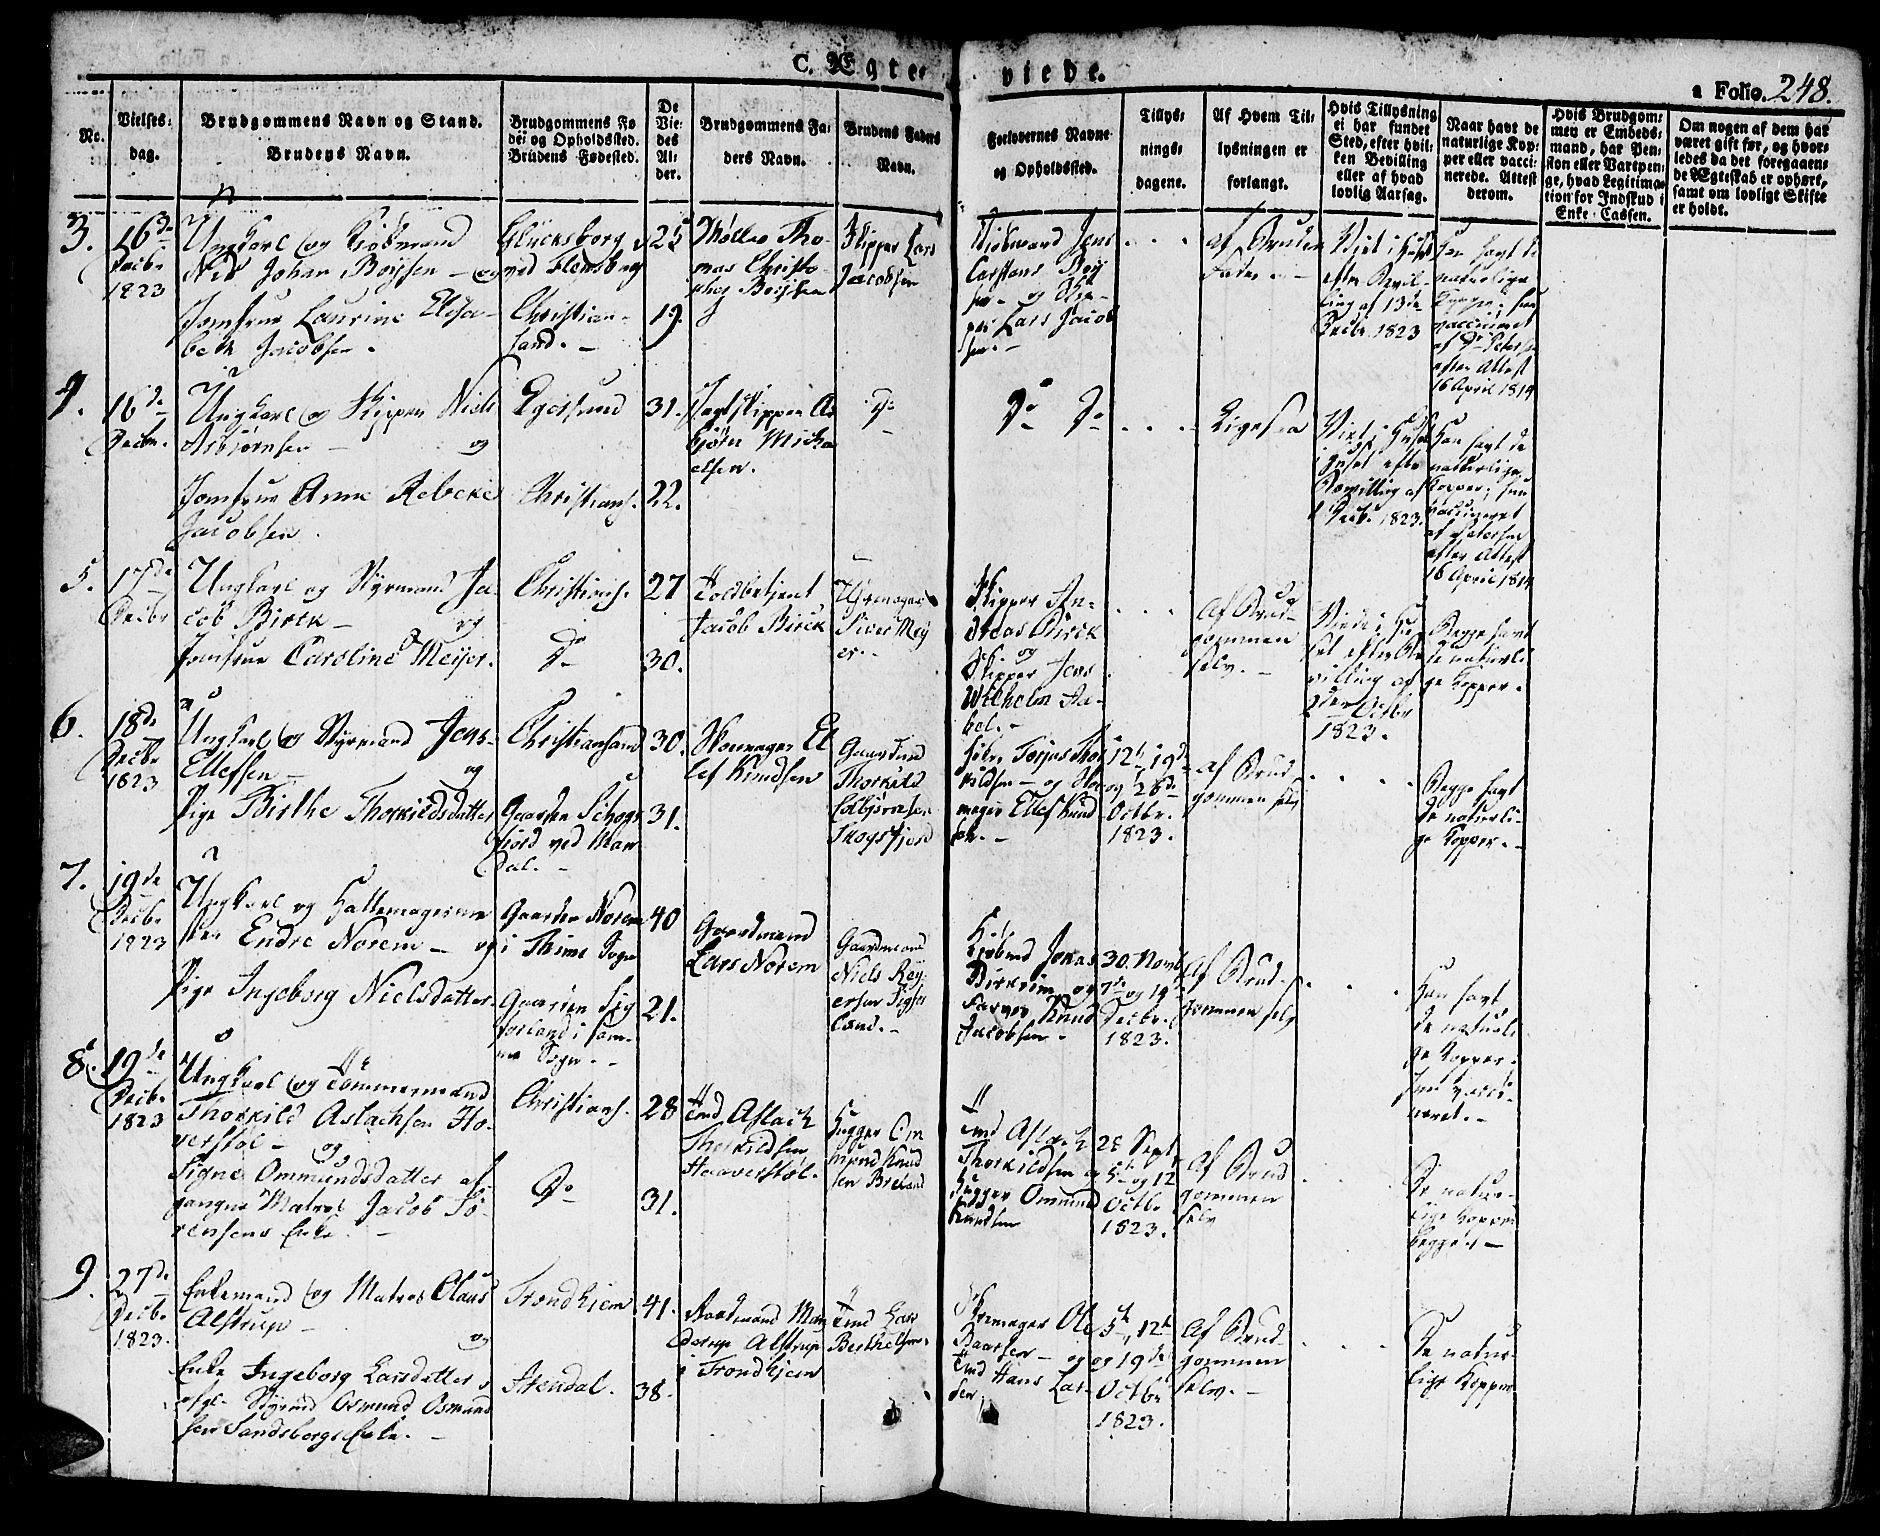 C. Ægte- viede.
a Folio. 248.
No.
Vielses-
dag.
Brudgommens Navn og Stand.
Brudens Navn.
Brudgommens Fø
de- og Opholdsted.
Brudens Fødested.
De
Vie-
des
Al-
der.
Brudgommens Fa-
ders Navn.
Brudens Faders
Navn.
Forlovernes Navne
og Opholdsted.
Tillys-
nings-
dagene.
Af Hvem Til-
lysningen er
forlangt.
Hvis Tillysning
ei har fundet
Sted, efter hvil-
ken Bevilling
eller af hvad
lovlig Aarsag.
Naar havt de
naturlige Kop-
per eller vacci-
nerede. Attest
derom.
Hvis Brudgom-
men er Embeds-
mand, har Pen-
sion eller Vartpen-
ge, hvad Legitima-
tion for Indskud i
Enke-Cassen.
Om nogen af dem har
været gift før, og hvor-
ledes da det foregaaen-
de Ægteskab er ophørt,
samt om lovligt Skifte
er holdt.
3.
16de
Decbr
1823
Ungkarl og Kjøbmand
Nis Johan Boysen — og
Jomfrue Laurine Elisa-
beth Jacobsen.
Glücksborg
ved Flensborg
Christian-
sand. —
25
19.
Møller Tho-
mas Christo-
pher Boysen
Skipper Lars
Jacobsen
Kjøbmand Jens
Carstens Boy
sen — og Skip-
per Lars Jacob
sen. —
af Bruden
Fader. —
Viet i Huset
efter Bevil-
ling af 13de
Decbr. 1823
Han havt de
naturlige
Kopper; hun
vaccineret
af Dr Petersen
efter Attest
16 April 1814
4.
16de
Decbr.
Ungkarl og Skipper Niels
Asbjørnsen — og
Jomfrue Anne Rebekke
Jacobsen.
Egersund
Christians.
31.
22.
Jagtskipper As
bjørn Micha
elsen.
Do
Do Do
Ligesaa
Viet i Huset
efter
Bevilling af
Decbr. 1823.
Han havt de
naturlige
Kopper; hun
vaccineret
af Petersen
efter Attest
16 April 1814
5.
17de
Decbr
Ungkarl og Styrmand Ja-
cob Birck — og
Jomfrue Caroline Meijer.
Christians.
Do
27
30.
Toldbetjent
Jacob Birck
Uhrmager
Meij
er. —
Skipper An-
dreas Birck
og
Skipper Jens
Wilhelm Aa-
bel. —
Af Brud-
gommen
selv. —
Viede i Hu-
set efter Be
villing af
Octbr
1823.
Begge havt
de naturli
ge Kopper.
6.
18de
Decbr
1823
Ungkarl og Styrmand Jens
Ellefsen — og
Pige Birthe Thorkildsdatter
Christiansand
Gaarden Schogs
fjord ved Man
dal. —
30.
31.
Skomager El
lef Knudsen
Gaardmd
Thorkild
Schogsfjord
Torjus Thor
kildsen — og Sko
mager Ellef Knud
sen. —
12te, 19de
og 26de
Octbr.
1823.
af Brud
gommen selv
Begge havt
de naturli-
ge Kopper. —
7.
19de
Decbr
1823
Ungkarl og Hattemagersvend
Endre Norem — og
Pige Ingeborg Nielsdatter
Gaarden Norem
i Thime Sogn
Gaarden Sig
vorland i sam-
me Sogn. —
40
21.
Gaardmand
Lars Norem
Gaardmand
Niels Rey
ersen
land. —
Kjøbmd Jonas
Birkrem og
Farver Knud
Jacobsen —
30. Novbr
7de og 19de
Decbr.
1823.
Af Brud-
gommen selv
Han havt
de naturli
ge Kopper.
Hun vacci-
neret. —
8.
19de
Decbr
1823
Ungkarl og Tømmermand
Thorkild Aslachsen Ho-
verstøl — og
Signe Ommundsdatter af-
gangne Matros Jacob Sø-
rensens Enke. —
Christians.
Do
28
31.
Tmd Aslach
Thorkildsen
Haaverstøl.
Hugger Om
mund Knud
sen Breland
Tmd Aslach
Thorkildsen og
Hugger Ommund
Knudsen
28 Sept,
5te og 12
Octbr
1823.
Af Brud
gommen
selv
De natur-
lige Kopper
begge. —
9.
27de
Decbr.
1823.
Enkemand og Matros Claus
Alstrup — og
Enke Ingeborg Larsdatter,
afgl. Styrmd Osmund Osmund
sen Sandsborgs Enke. —
Trondhjem
Stendal.
41.
38.
Raadmand
Alstrup
i Trondhjem
Tmd Lars
Berthelsen.
Skomager Ole
Baarsen — og
Tmd Hans Lar-
sen
5te, 12te
og 19de
Octbr.
1823.
Af Brud
gommen
selv. —
De natur-
lige Kopper